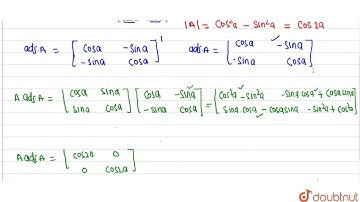 |A| = cos²a − sin²a = cos2a
adj.A = [cosa −sina −sina cosa]' adj.A = [cosa −sina −sina cosa]
A.adjA = [cosa sina sina cosa] [cosa −sina −sina cosa] = [cos²a − sin²a −sina cosa + cosa sina sina.cosa − cosa sina −sin²a + cos²a]
A adjA = [cos2a 0 0 cos2a]
doubtnut